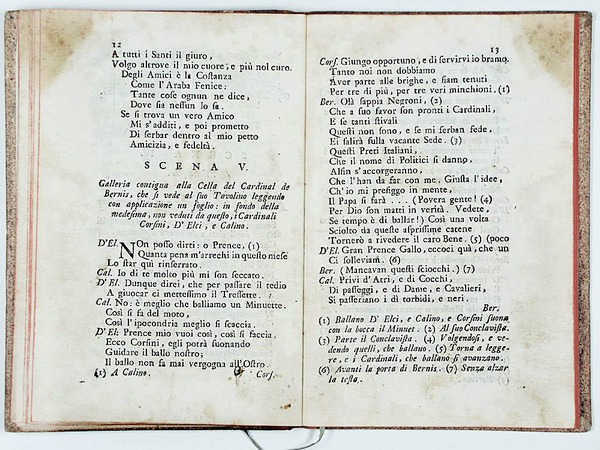 12
A tutti i Santi il giuro,
Volgo altrove il mio cuore, e più nol curo.
Degli Amici è la Costanza
Come l'Araba Fenice:
Tante cose ognun ne dice,
Dove sia nessun lo sa.
Se si trova un vero Amico
Mi s'additi, e poi prometto
Di serbar dentro al mio petto
Amicizia, e fedeltà.
SCENA V.
Galleria contigua alla Cella del Cardinal de
Bernis, che si vede al suo Tavolino leggendo
con applicazione un foglio: in fondo della
medesima, non veduti da questo, i Cardinali
Corsini, D' Elci, e Calino.
D'El. NOn posso dirti: o Prence, (1)
Quanta pena m'arrechi in questo mese
Lo star quì rinserrato.
Cal. Io di te molto più mi son seccato.
D' El. Dunque direi, che per passare il tedio
A giuocar ci mettessimo il Tressette.
Cal. No: è meglio che balliamo un Minuette.
Così si fa del moto,
Così l'ipocondria meglio si scaccia.
D' El. Prence mio vuoi così, così si faccia.
Ecco Corsini, egli potrà suonando
Guidare il ballo nostro;
Il ballo non fa mai vergogna all'Ostro.
(1) A Calino. Cors.
13
Cors. Giungo opportuno, e di servirvi io bramo.
Tanto noi non dobbiamo
Aver parte alle brighe, e siam tenuti
Per tre di più, per tre veri minchioni. (1)
Ber. Olà sappia Negroni, (2)
Che a suo favor son pronti i Cardinali,
E se tanti stivali
Questi non sono, e se mi serban fede,
Ei salirà sulla vacante Sede. (3)
Questi Preti Italiani,
Che il nome di Politici si danno,
Alfin s'accorgeranno,
Che l'han da far con me. Giusta l'idee,
Ch' io mi prefiggo in mente,
Il Papa si farà . . . (Povera gente! (4)
Per Dio son matti in verità. Vedete,
Se tempo è di ballar!) Così una volta
Sciolto da queste asprissime catene
Tornerò a rivedere il caro Bene. (5) (poco
D'El. Gran Prence Gallo, eccoci quà, che un
Ci solleviam. (6)
Ber. (Mancavan questi sciocchi.) (7)
Cal. Privi d'Atri, e di Cocchi,
Di passeggi, e di Dame, e Cavalieri,
Si passeriano i dì torbidi, e neri.
Ber.
(1) Ballano D' Elci, e Calino, e Corsini suona
con la bocca il Minuet. (2) Al suo Conclavista.
(3) Parte il Conclavista. (4) Volgendosi, e ve-
dendo quelli, che ballano. (5) Torna a legge-
re, e i Cardinali, che ballano si avanzano.
(6) Avanti la porta di Bernis. (7) Senza alzar
la testa.